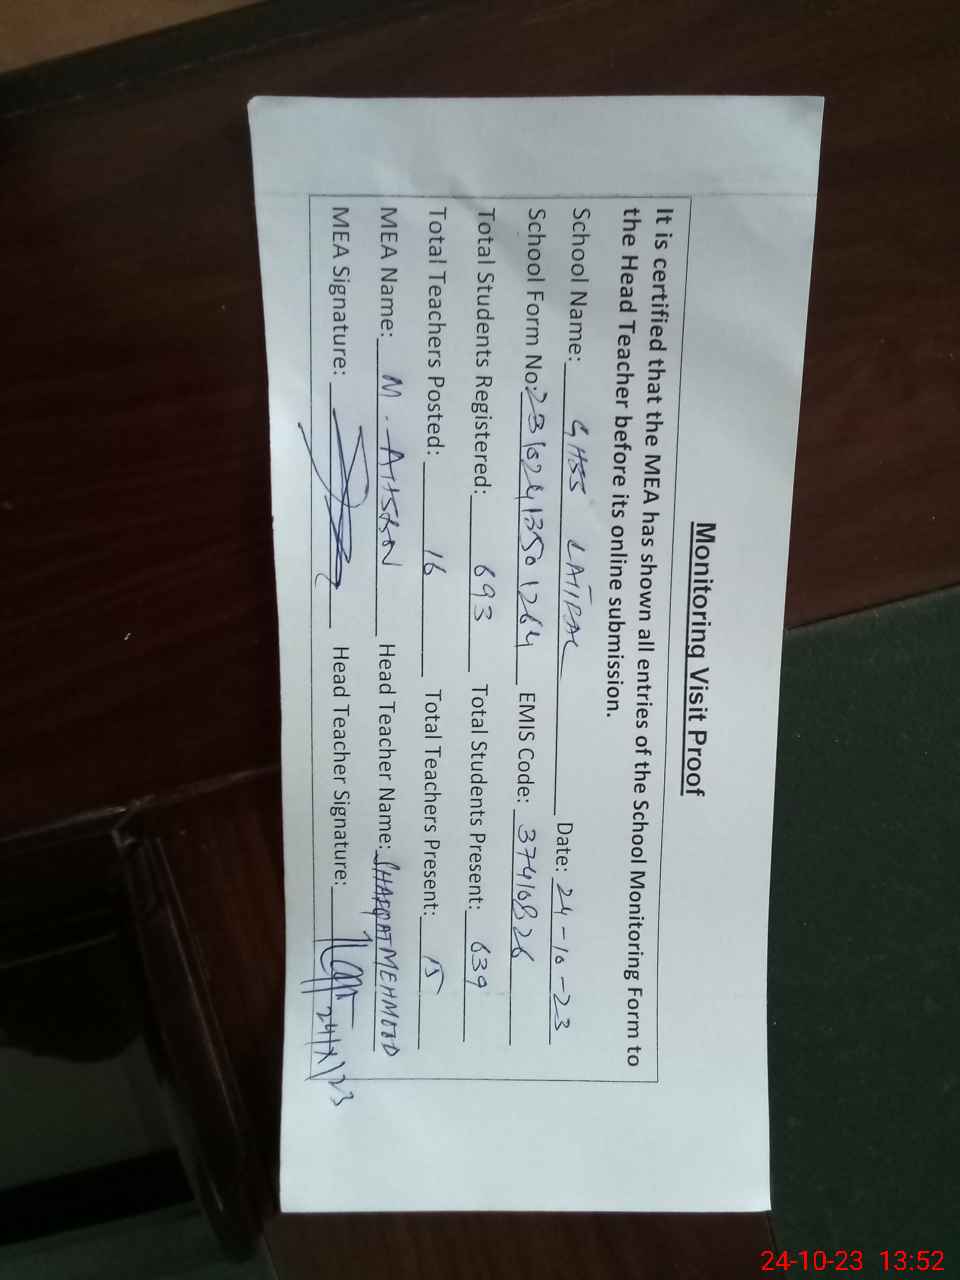 Monitoring Visit Proof
It is certified that the MEA has shown all entries of the School Monitoring Form to
the Head Teacher before its online submission.
School Name: GHSS LATIPAL Date: 24-10-23
School Form No: 23102413501264 EMIS Code: 37410826
Total Students Registered: 693 Total Students Present: 639
Total Teachers Posted: 16 Total Teachers Present: 15
MEA Name: M. AHSAN Head Teacher Name: SHAFQAT MEHMOOD
MEA Signature: Head Teacher Signature:
24/X/23
24-10-23 13:52